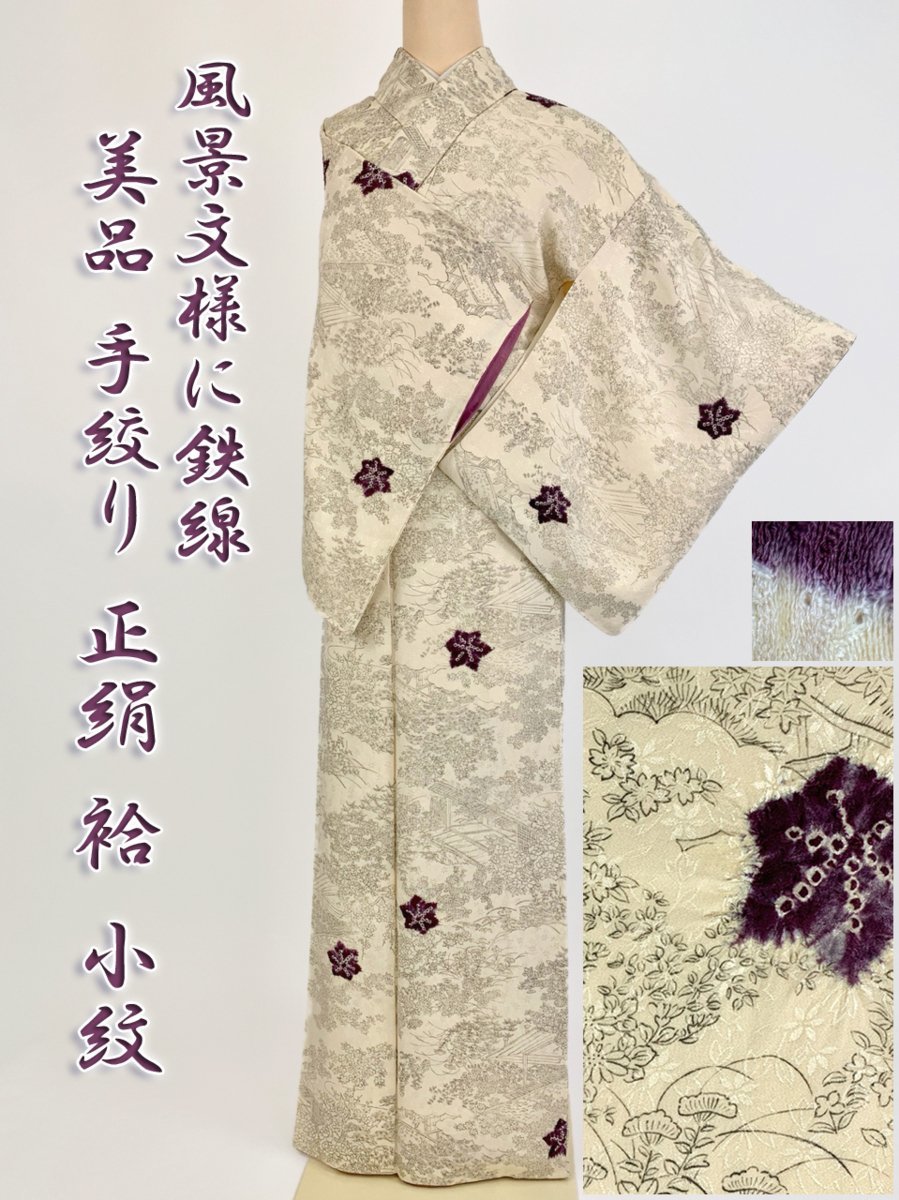 風景文様に鉄線
美品 手絞り 正絹 袷 小紋